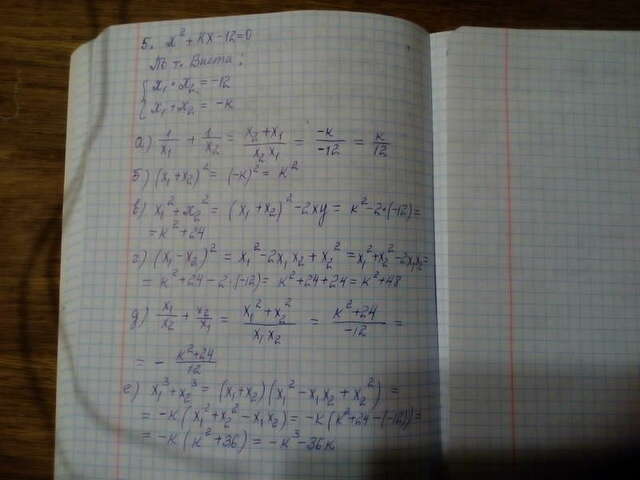 5. x² + кx - 12 = 0
По т. Виета:
{ x₁ · x₂ = -12
{ x₁ + x₂ = -к
а) 1/x₁ + 1/x₂ = (x₂ + x₁)/(x₂ x₁) = -к/-12 = к/12
б) (x₁ + x₂)² = (-к)² = к²
в) x₁² + x₂² = (x₁ + x₂)² - 2xy = к² - 2·(-12) =
= к² + 24
г) (x₁ - x₂)² = x₁² - 2x₁x₂ + x₂² = x₁² + x₂² - 2x₁x₂ =
= к² + 24 - 2·(-12) = к² + 24 + 24 = к² + 48
д) x₁/x₂ + x₂/x₁ = (x₁² + x₂²)/(x₁x₂) = (к² + 24)/-12 =
= - (к² + 24)/12
е) x₁³ + x₂³ = (x₁ + x₂)(x₁² - x₁x₂ + x₂²) =
= -к(x₁² + x₂² - x₁x₂) = -к(к² + 24 - (-12)) =
= -к(к² + 36) = -к³ - 36к